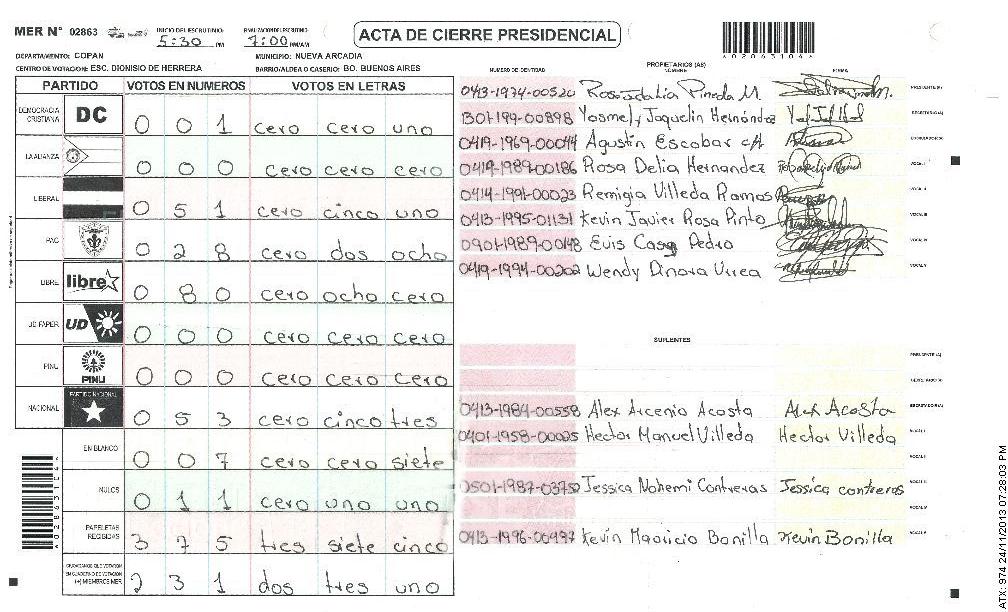 MER N° 02863 INICIO DEL ESCRUTINIO 5:30 PM FINALIZACION DEL ESCRUTINIO 7:00 PM/AM ACTA DE CIERRE PRESIDENCIAL
DEPARTAMENTO: COPAN MUNICIPIO: NUEVA ARCADIA
CENTRO DE VOTACION: ESC. DIONISIO DE HERRERA BARRIO/ALDEA O CASERIO: BO. BUENOS AIRES
PARTIDO VOTOS EN NUMEROS VOTOS EN LETRAS
DEMOCRACIA CRISTIANA DC 0 0 1 cero cero uno
LA ALIANZA 0 0 0 cero cero cero
LIBERAL 0 5 1 cero cinco uno
PAC 0 2 8 cero dos ocho
LIBRE libre 0 8 0 cero ocho cero
UD FAPER UD 0 0 0 cero cero cero
PINU PINU 0 0 0 cero cero cero
NACIONAL PARTIDO NACIONAL 0 5 3 cero cinco tres
EN BLANCO 0 0 7 cero cero siete
NULOS 0 1 1 cero uno uno
PAPELETAS RECIBIDAS 3 7 5 tres siete cinco
CIUDADANOS QUE VOTARON EN CUADERNO DE VOTACION (+) MIEMBROS MER 2 3 1 dos tres uno
PROPIETARIOS (AS)
NUMERO DE IDENTIDAD NOMBRE FIRMA
0413-1974-00520 Pineda M. PRESIDENTE (A)
1301-199-00898 Yosmely Jaquelin Hernández SECRETARIO (A)
0419-1969-00044 Agustin Escobar ESCRUTADOR (A)
0419-1989-00186 Rosa Delia Hernandez VOCAL I
0414-1991-00023 Remigia Villeda Ramos VOCAL II
0413-1995-01131 Kevin Javier Rosa Pinto VOCAL III
0901-1989-00148 Pedro VOCAL IV
0419-1994-00202 Wendy Dinora VOCAL V
SUPLENTES
PRESIDENTE (A)
SECRETARIO (A)
0413-1984-00558 Alex Arcenio Acosta Alex Acosta ESCRUTADOR (A)
0401-1958-00025 Hector Manuel Villeda Hector Villeda VOCAL I
VOCAL II
0501-1987-03752 Jessica Nohemi Contreras Jessica contreras VOCAL III
VOCAL IV
0413-1996-00937 Kevin Mauricio Bonilla Kevin Bonilla VOCAL V
ATX: 974 24/11/2013 07:28:03 PM